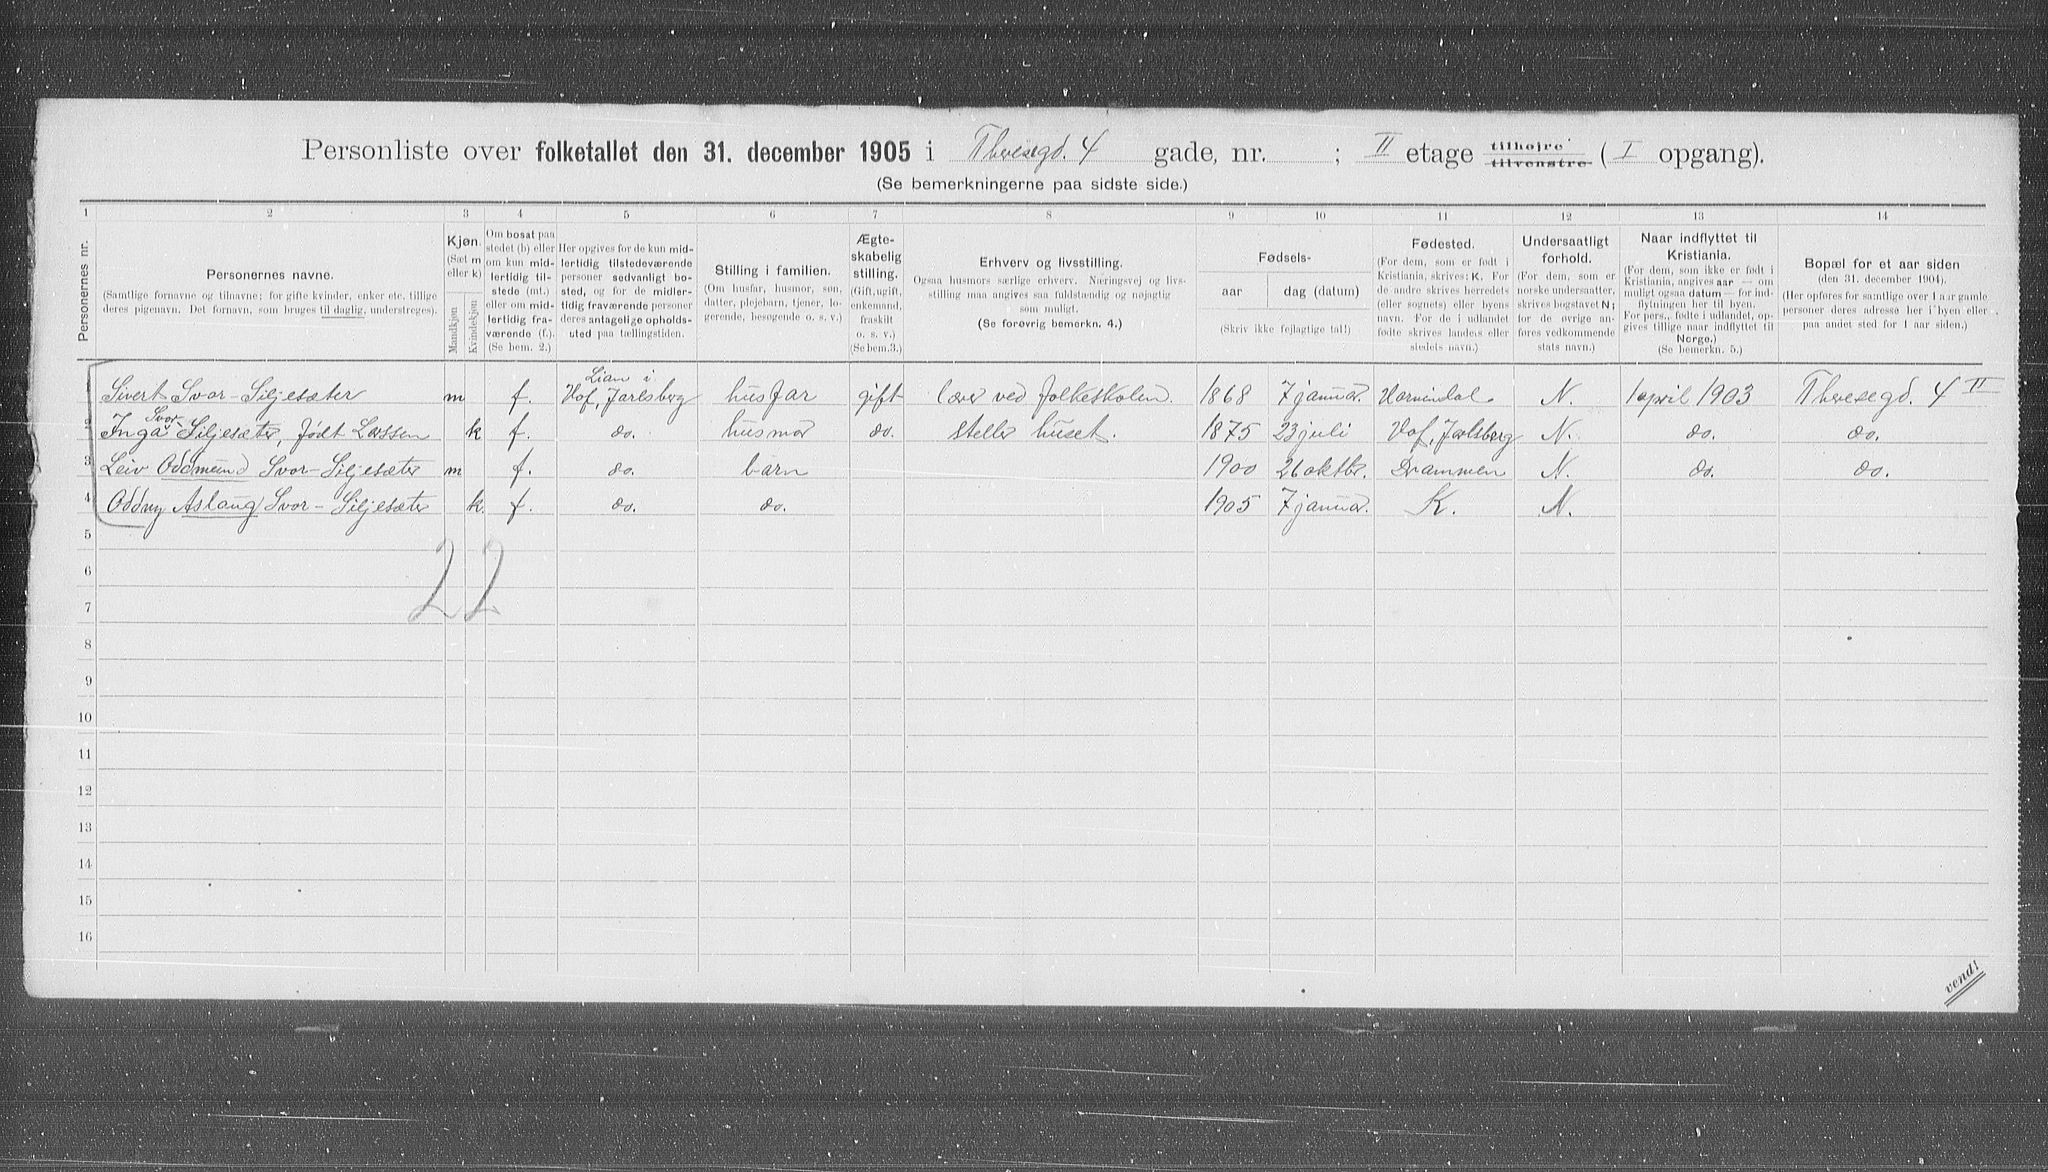 Personliste over folketallet den 31. december 1905 i Theresegd. 4 gade, nr. ; II etage tilhøjre tilvenstre ( I opgang).
(Se bemerkningerne paa sidste side.)
1 2 3 4 5 6 7 8 9 10 11 12 13 14
Personernes nr.
Personernes navne.
(Samtlige fornavne og tilnavne; for gifte kvinder, enker etc. tillige
deres pigenavn. Det fornavn, som bruges til daglig, understreges).
Kjøn.
(Sæt m
eller k)
Mandkjøn
Kvindekjøn
Om bosat paa
stedet (b) eller
om kun mid-
lertidig til-
stede (mt.)
eller om mid-
lertidig fra-
værende (f.).
(Se bem. 2.)
Her opgives for de kun mid-
lertidig tilstedeværende
personer sedvanligt bo-
sted, og for de midler-
tidig fraværende personer
deres antagelige opholds-
sted paa tællingstiden.
Stilling i familien.
(Om husfar, husmor, søn,
datter, plejebarn, tjener, lo-
gerende, besøgende o. s. v.)
Ægte-
skabelig
stilling.
(Gift, ugift,
enkemand,
fraskilt
o. s. v.)
(Se bem. 3.)
Erhverv og livsstilling.
Ogsaa husmors særlige erhverv. Næringsvej og livs-
stilling maa angives saa fuldstændig og nøjagtig
som muligt.
(Se forøvrig bemerkn. 4.)
Fødsels-
aar
dag (datum)
(Skriv ikke fejlagtige tal!)
Fødested.
(For dem, som er født i
Kristiania, skrives: K. For
de andre skrives herredets
(eller sognets) eller byens
navn. For de i udlandet
fødte skrives landets eller
stedets navn.)
Undersaatligt
forhold.
(For dem, som er
norske undersaatter,
skrives bogstavet N;
for de øvrige an-
føres vedkommende
stats navn.)
Naar indflyttet til
Kristiania.
(For dem, som ikke er født i
Kristiania, angives aar — om
muligt ogsaa datum — for ind-
flytningen her til byen.
For pers., fødte i udlandet, op-
gives tillige naar indflyttet til
Norge.)
(Se bemerkn. 5.)
Bopæl for et aar siden
(den 31. december 1904).
(Her opføres for samtlige over 1 aar gamle
personer deres adresse her i byen eller
paa andet sted for 1 aar siden.)
1 Sivert Svor-Siljesæter m f. Lian i Hof, Jarlsberg husfar gift lærer ved folkeskolen. 1868 7 januar. Hornindal N. 1 april 1903 Theresegd. 4 II
2 Inga Svor- Siljesæter, født Larssen k f. do. husmor do. steller huset. 1875 23 juli Hof, Jarlsberg N. do. do.
3 Leiv Oddmund Svor-Siljesæter m f. do. barn 1900 26 oktbr. Drammen N. do. do.
4 Oddny Aslaug Svor-Siljesæter k f. do. do. 1905 7 januar. K. N.
5
2 2
6
7
8
9
10
11
12
13
14
15
16
vend!